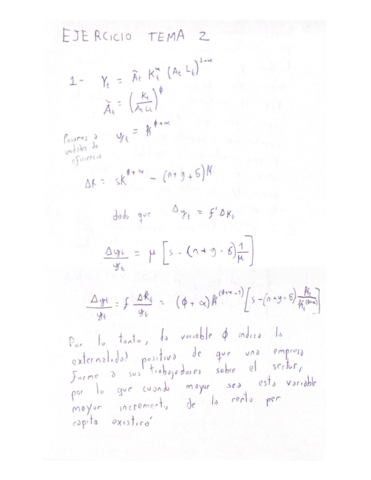 EJERCICIO TEMA 2
1- Yₜ = Ãₜ Kₜ^α (Aₜ Lₜ)^(1-α)
Ãₜ = (Kₜ / Aₜ Lₜ)^ϕ
Pasamos a
variables de
eficiencia
yₜ = k^(ϕ+α)
Δk = sk^(ϕ+α) - (n+g+δ)k
dado que Δyₜ = f' Δkₜ
Por lo tanto, la variable ϕ indica la
externalidad positiva de que una empresa
forme a sus trabajadores sobre el sector,
por lo que cuando mayor sea esta variable
mayor incremento de la renta per
capita existirá